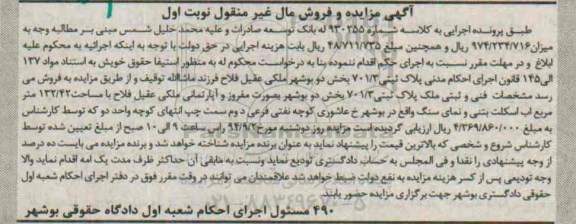 آگهی مزایده و فروش مال غیر منقول نوبت اول
طبق پرونده اجرایی به کلاسه شماره ۹۳۰۲۵۵ له بانک توسعه صادرات و علیه محمد خلیل شمس مبنی بر مطالبه وجه به
میزان ۹۷۴/۲۳۴/۷۱۶ ریال و همچنین مبلغ ۴۸/۷۱۱/۷۳۵ ریال بابت هزینه اجرایی در حق دولت با توجه به اینکه اجرائیه به محکوم علیه
ابلاغ و در مهلت مقرر نسبت به اجرای حکم اقدام ننموده بنا به درخواست محکوم له به منظور استیفا حقوق خویش به استناد مواد ۱۳۷
الی ۱۴۵ قانون اجرای احکام مدنی پلاک ثبتی ۷۰۱/۳ بخش دو بوشهر ملکی عقیل فلاح فرزند ماشاالله توقیف و از طریق مزایده به فروش می
رسد مشخصات فنی و ثبتی ملک پلاک ثبتی ۷۰۱/۳ بخش دو بوشهر بصورت مفروز و آپارتمانی ملکی عقیل فلاح با مساحت ۱۳۲/۴۲ متر
مربع اب اسکلت بتنی و نمای سنگ واقع در بوشهر خ عاشوری کوچه نفتی فرعی دوم سمت چپ انتهای کوچه واحد دو که توسط کارشناس
به مبلغ ۴/۳۶۹/۸۶۰/۰۰۰ ریال ارزیابی گردیده است مزایده روز دوشنبه مورخ ۹۴/۹/۲ راس ساعت ۹ الی ۱۰ صبح از مبلغ تعیین شده توسط
کارشناس شروع و شخصی که بالاترین قیمت را پیشنهاد نماید به عنوان برنده مزایده شناخته خواهد شد و برنده مزایده می بایست ده درصد
از وجه پیشنهادی را نقدا و فی المجلس به حساب دادگستری تودیع نماید ونسبت به مابقی آن حداکثر ظرف مدت یک امه اقدام نماید والا
وجه تودیعی پس از کسر هزینه مزایده به نفع دولت ضبط خواهد شد علاقمندان می توانند در وقت مقرر فوق در دفتر اجرای احکام شعبه اول
حقوقی دادگستری بوشهر جهت برگزاری مزایده حضور یابند.
۴۹۰ مسئول اجرای احکام شعبه اول دادگاه حقوقی بوشهر